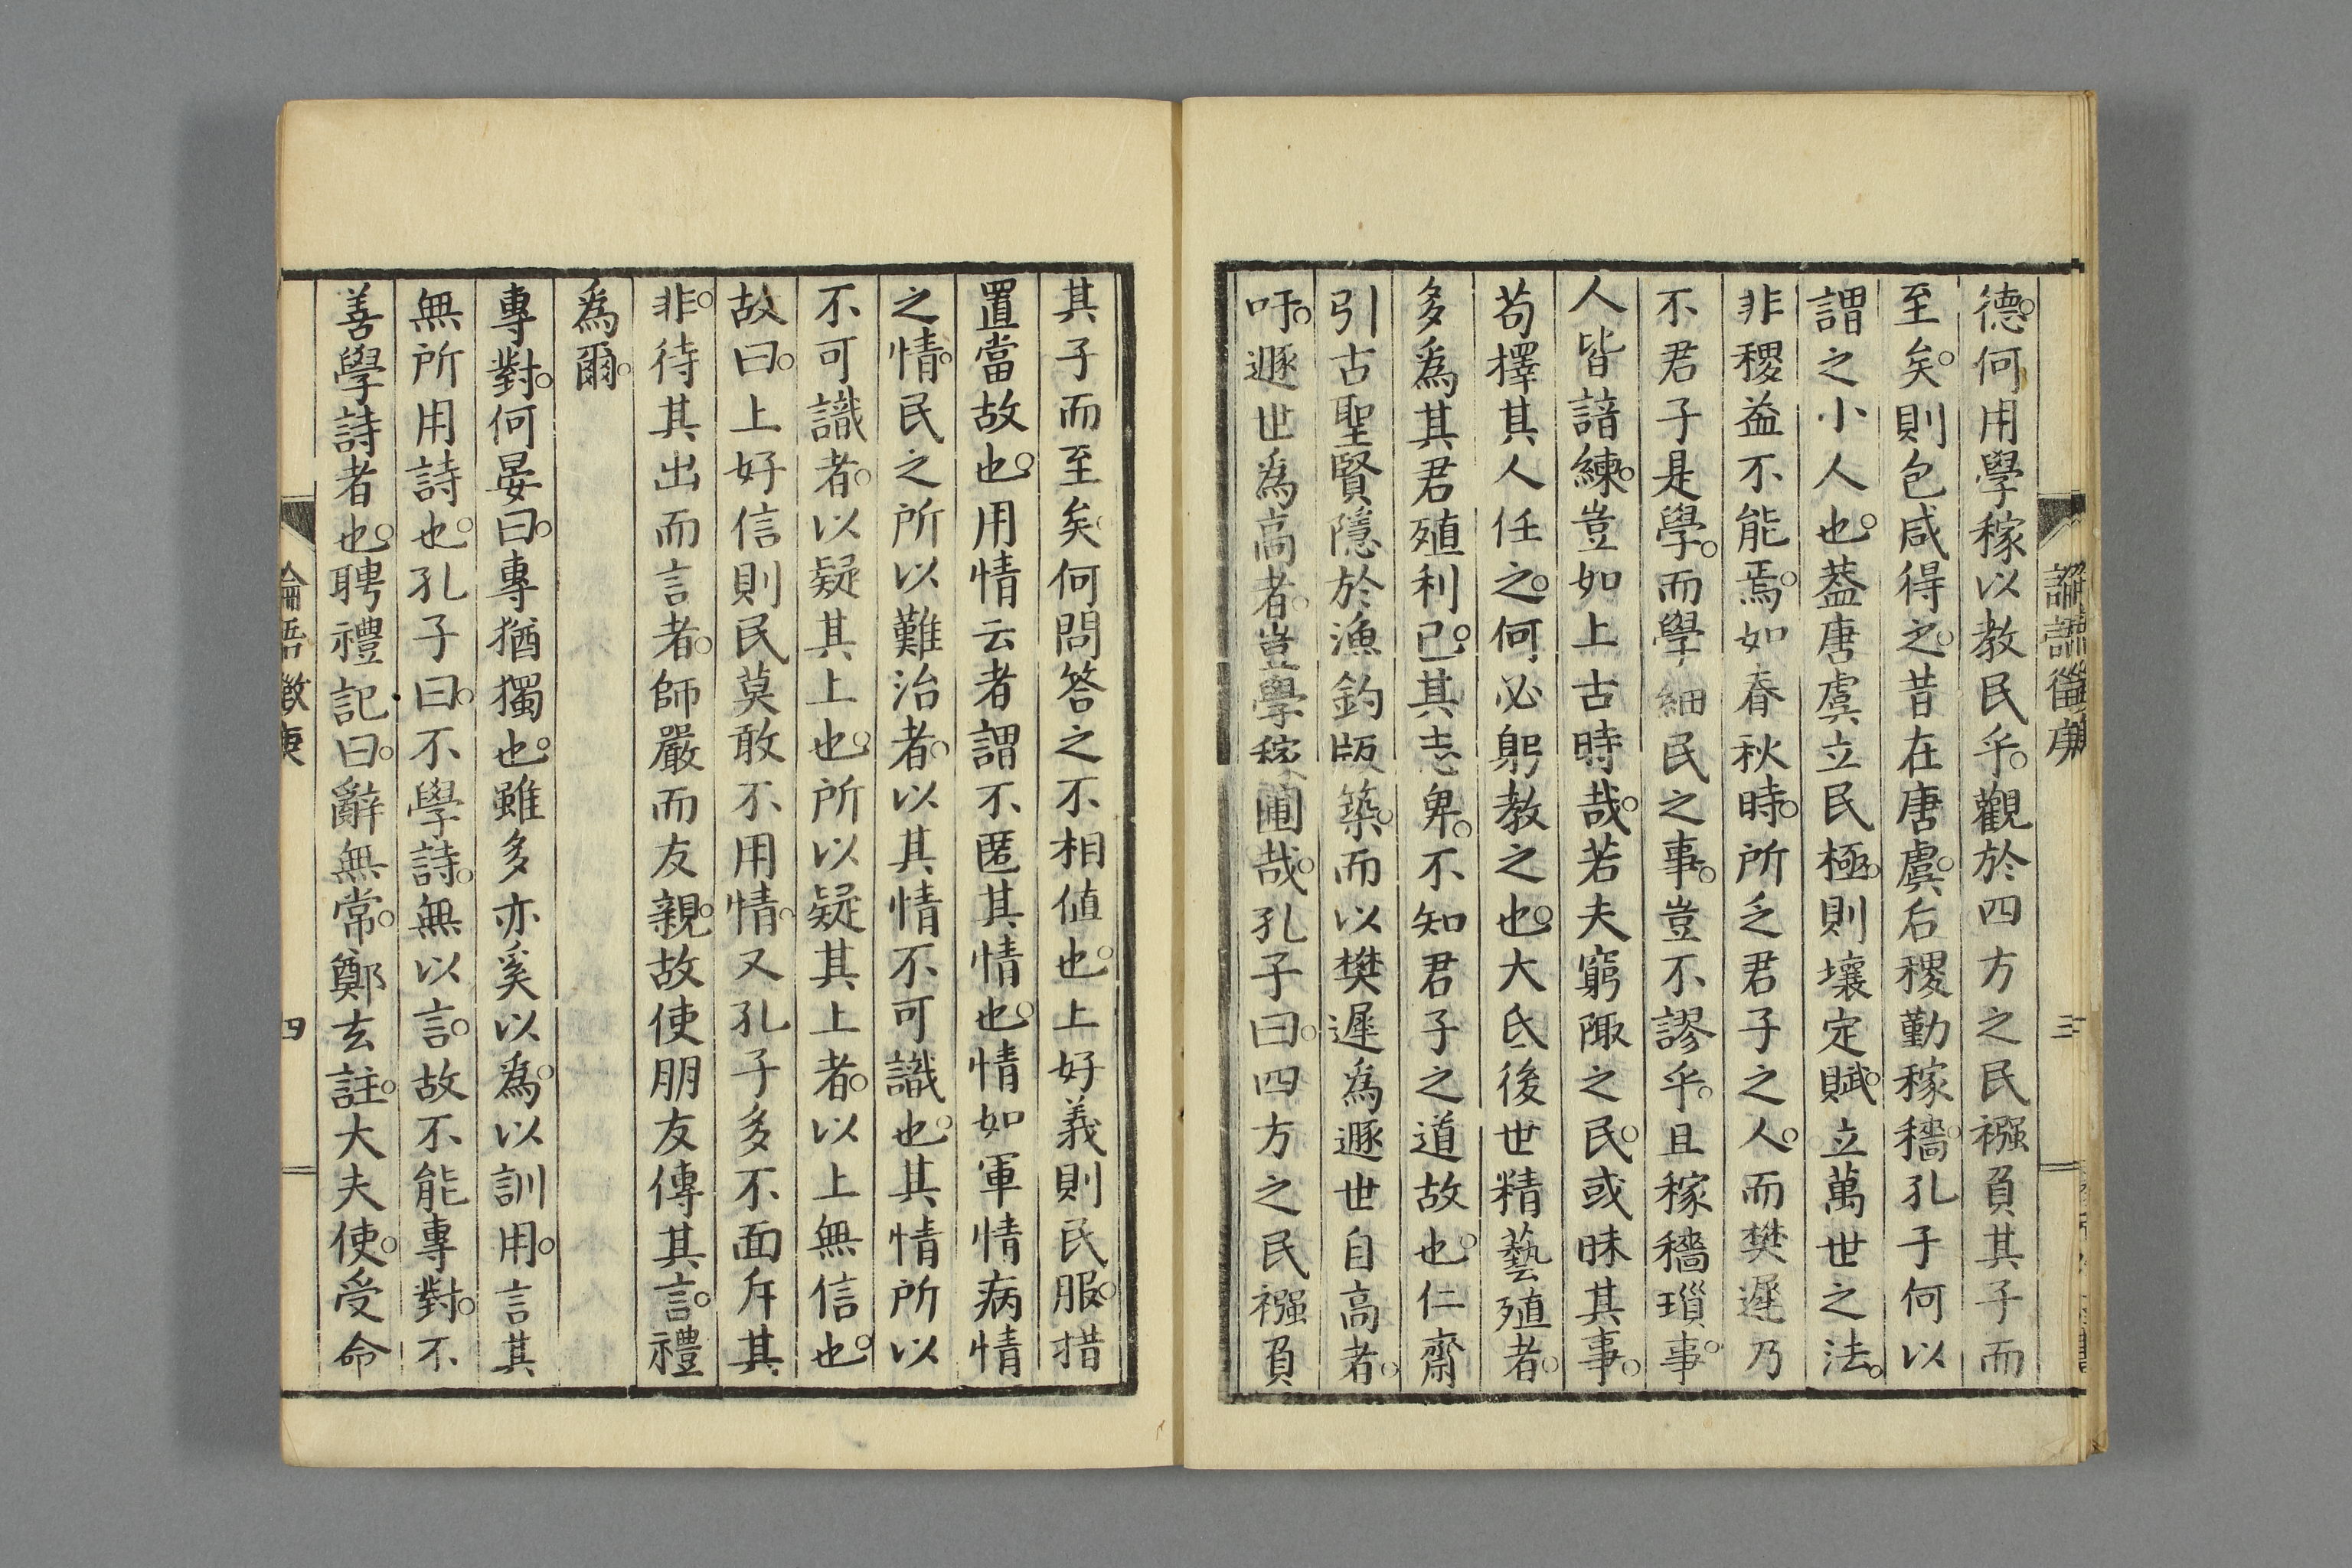 德。何用學稼以教民乎。觀於四方之民襁負其子而
至矣。則包咸得之。昔在唐虞。后稷勤稼穡。孔子何以
謂之小人也。蓋唐虞立民極。則壤定賦。立萬世之法。
非稷益不能焉。如春秋時。所乏君子之人。而樊遲乃
不君子是學。而學細民之事。豈不謬乎。且稼穡瑣事。
人皆諳練。豈如上古時哉。若夫窮陬之民。或昧其事。
苟擇其人任之。何必躬教之也。大氐後世精藝殖者。
多爲其君殖利已。其志卑。不知君子之道故也。仁齋
引古聖賢隱於漁釣版築。而以樊遲爲遯世自高者。
吁。遯世爲高者。豈學稼圃哉。孔子曰。四方之民襁負
三
其子而至矣。何問答之不相値也。上好義則民服。措
置當故也。用情云者謂不匿其情也。情如軍情病情
之情。民之所以難治者。以其情不可識也。其情所以
不可識者。以疑其上也。所以疑其上者。以上無信也。
故曰。上好信則民莫敢不用情。又孔子多不面斥其
非。待其出而言者。師嚴而友親。故使朋友傳其言。禮
爲爾。
專對。何晏曰。專猶獨也。雖多亦奚以爲。以訓用。言其
無所用詩也。孔子曰。不學詩。無以言。故不能專對。不
善學詩者也。聘禮記曰。辭無常。鄭玄註。大夫使。受命
論語徵庚 四